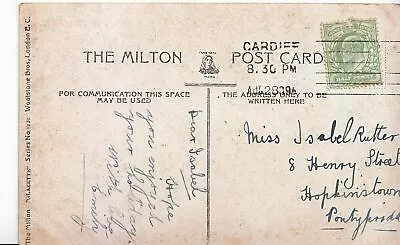 THE MILTON POST CARD
FOR COMMUNICATION THIS SPACE
MAY BE USED
THE ADDRESS ONLY TO BE
WRITTEN HERE
CARDIFF
8.30 PM
Dear Isabel
Hope
you enjoyed
your holiday
with
Miss Isabel Rutter
8 Henry Street
Hopkinstown
Pontypridd
The Milton "ALBRETTE" Series No. Woolstone Bros, London E.C.